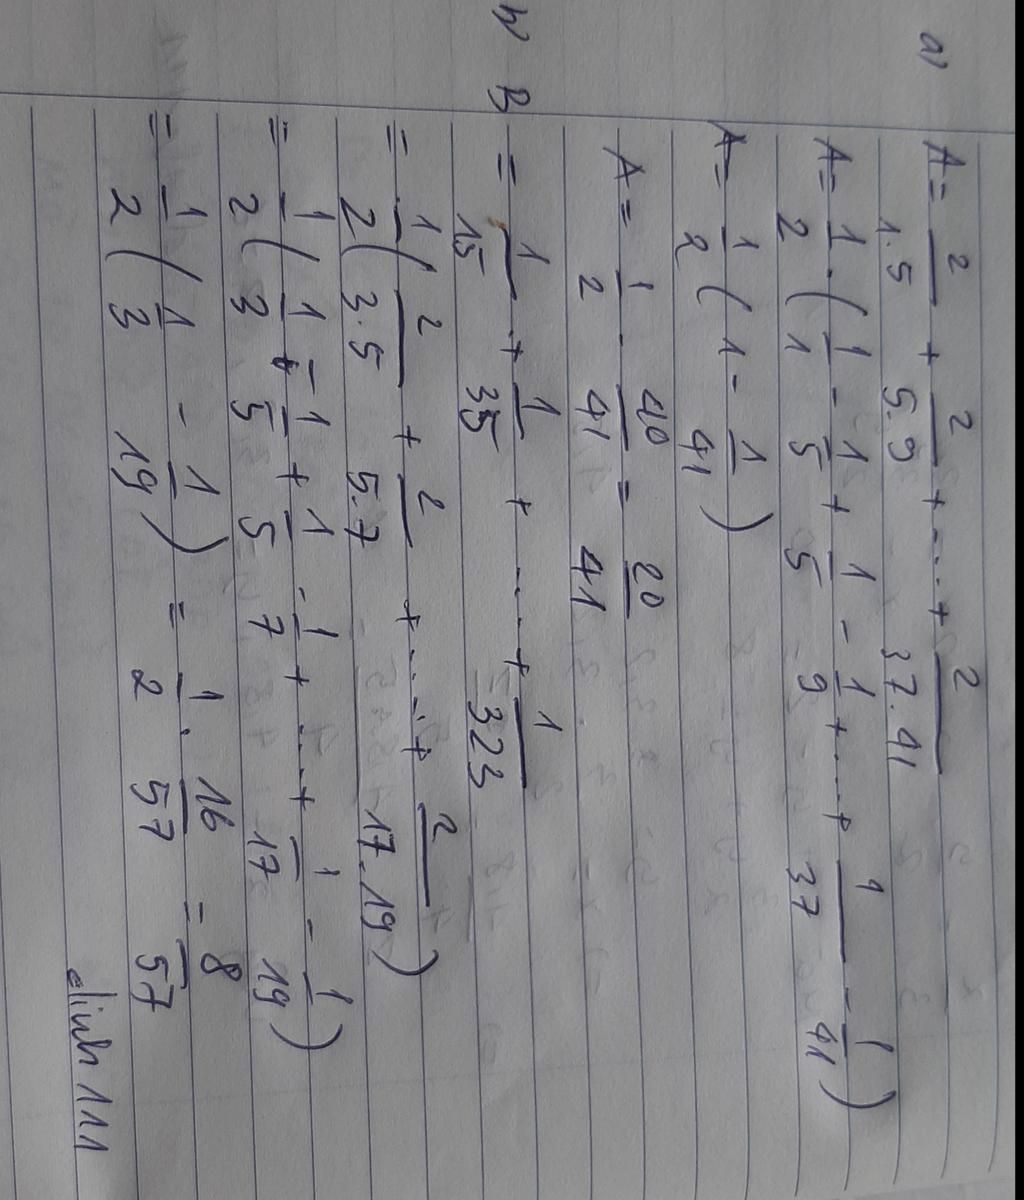 a) A = 2/1.5 + 2/5.9 + ... + 2/37.41
A = 1/2 . ( 1/1 - 1/5 + 1/5 - 1/9 + ... + 1/37 - 1/41 )
A = 1/2 ( 1 - 1/41 )
A = 1/2 . 40/41 = 20/41
b) B = 1/15 + 1/35 + ... + 1/323
= 1/2 ( 2/3.5 + 2/5.7 + ... + 2/17.19 )
= 1/2 ( 1/3 - 1/5 + 1/5 - 1/7 + ... + 1/17 - 1/19 )
= 1/2 ( 1/3 - 1/19 ) = 1/2 . 16/57 = 8/57
dinh 111